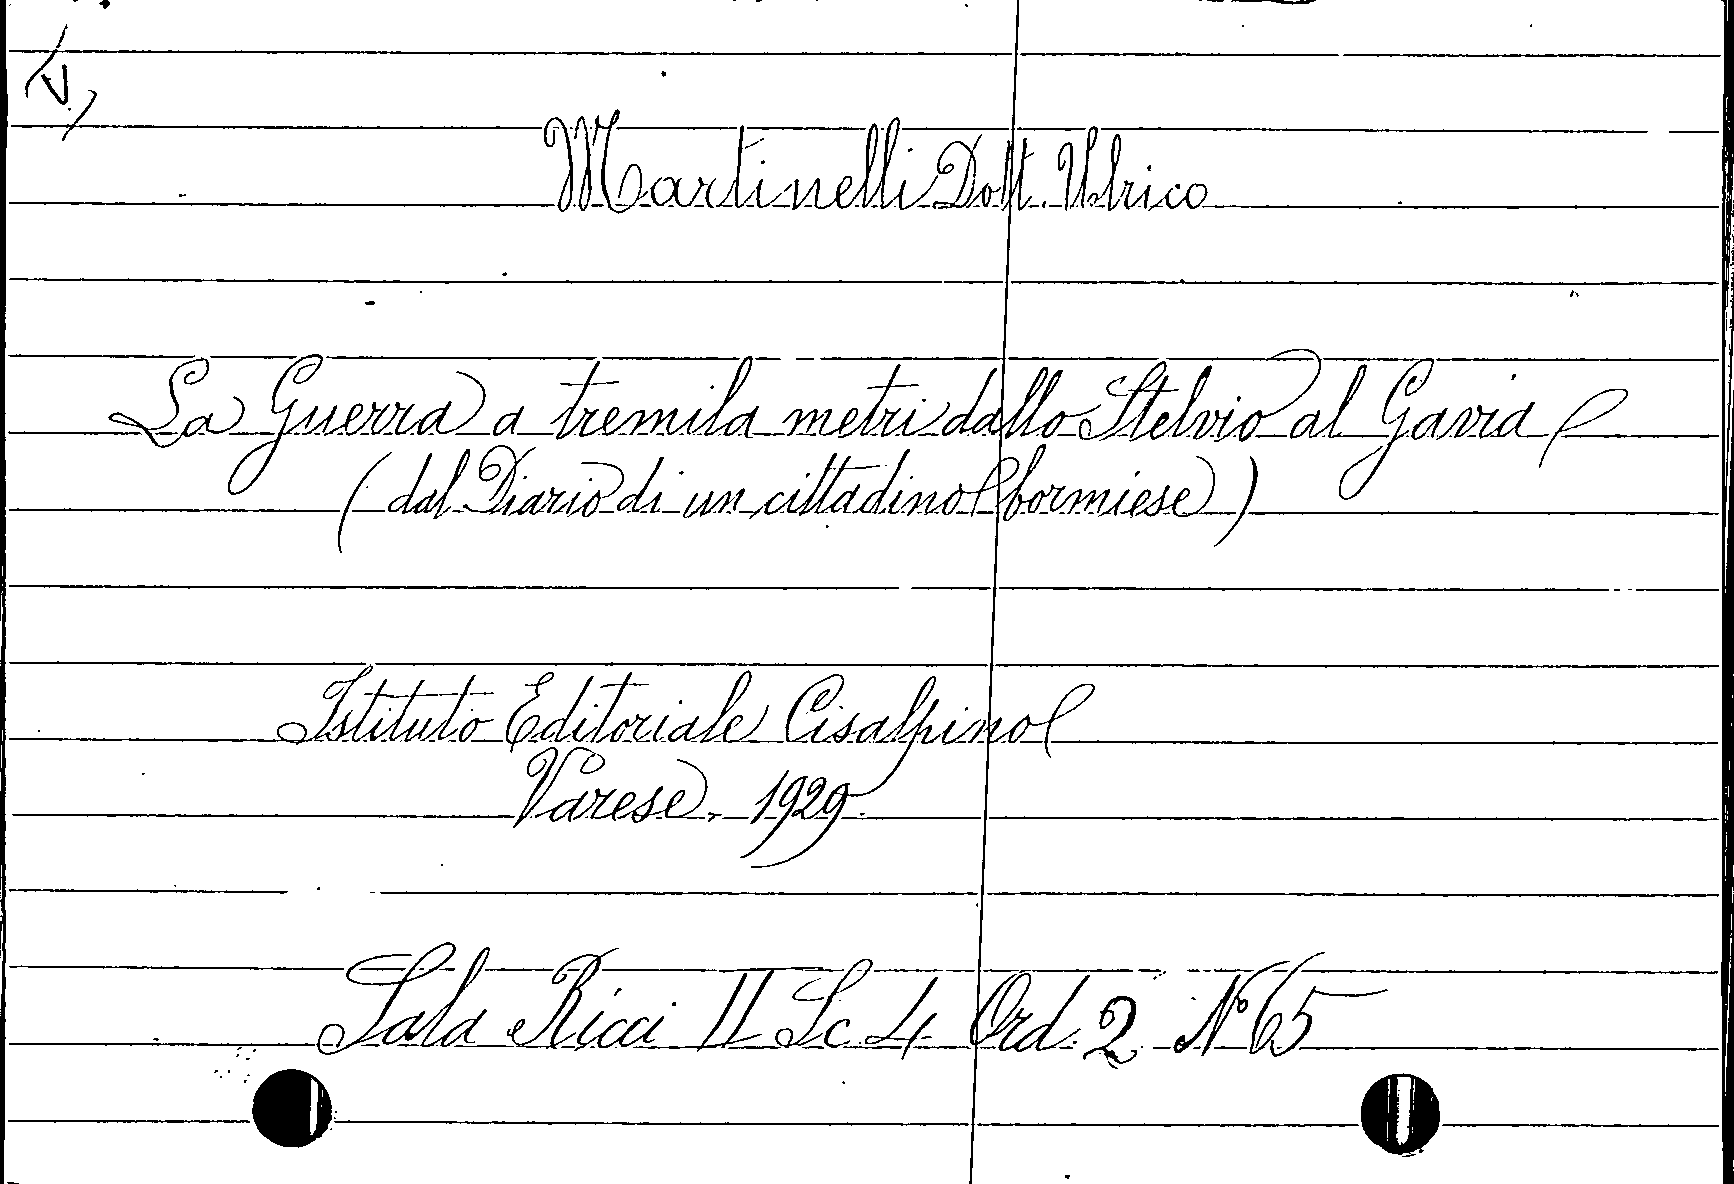 (V)
Martinelli Dott. Ulrico
La Guerra a tremila metri dallo Stelvio al Gavia
(dal Diario di un cittadino bormiese)
Istituto Editoriale Cisalpino
Varese. 1929.
Sala Ricci II Sc 4 Ord. 2 N° 65